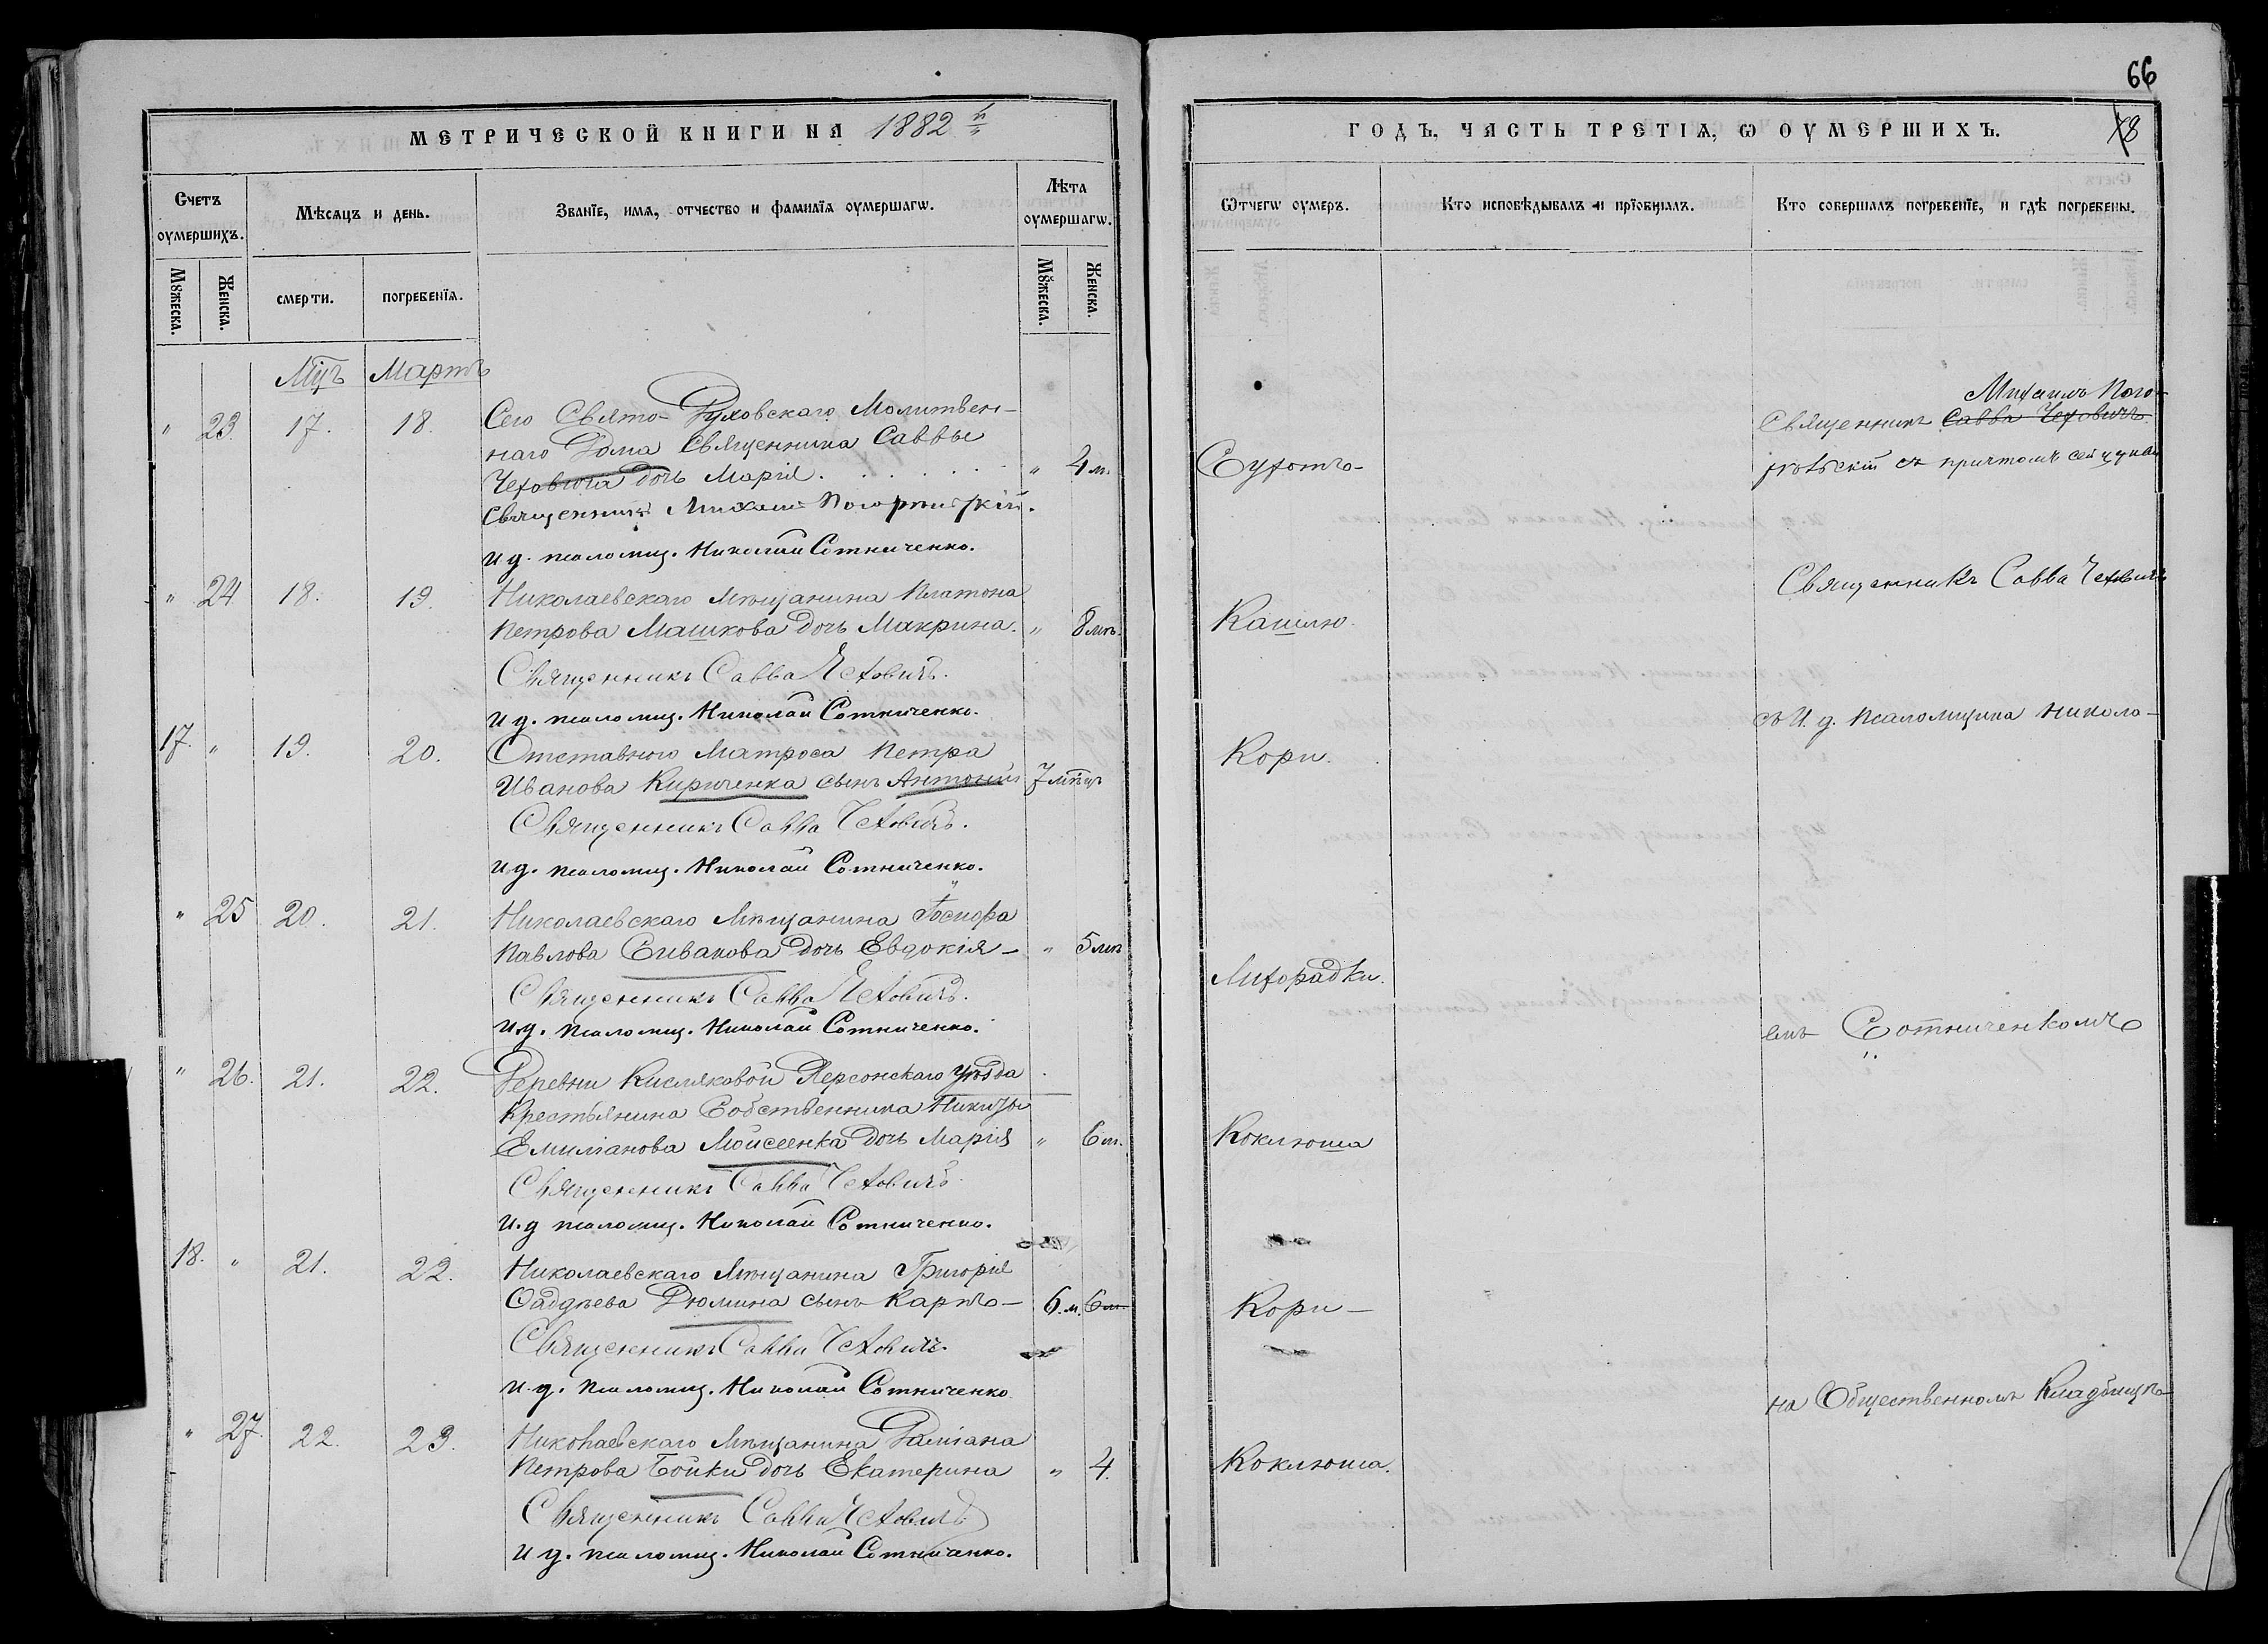 66
МЕТРИЧЕСКОЙ КНИГИ НА 1882 й
ГОДЪ, ЧАСТЬ ТРЕТІѦ, Ѡ ОУМЕРШИХЪ.
78
Счетъ оумершихъ.
Мѣсѧцъ и день.
Званїе, имѧ, отчество и фамилїѧ оумершагѡ.
Лѣта оумершагѡ.
Ѿтчегѡ оумеръ.
Кто исповѣдывалъ и прїобщалъ.
Кто совершалъ погребенїе, и гдѣ погребены.
Мꙋжеска.
Женска.
смерти.
погребенїѧ.
Мꙋжеска.
Женска.
Мцъ Мартъ
" 23. 17. 18. Сего Свято-Духовскаго Молитвен-
наго Дома Священника Саввы
Чеховича дочь Марія. " 4 м. Сухотъ-
Священникъ Михаилъ
Священникъ Савва Чеховичъ
съ причтомъ сей церкви
и д. псаломщ. Николай Сотниченко.
" 24 18. 19. Николаевскаго мѣщанина Платона
Петрова Машкова дочь Макрина. " 8 мц. Кашлю
Священникъ Савва Чеховичъ
Священникъ Савва Чеховичъ.
и д. псаломщ. Николай Сотниченко.
съ И. д. Псаломщика Никола-
17. " 19. 20. Отставного Матроса Петра
Иванова Кириченка сынъ Антоній 7 мѣцъ Кори.
Священникъ Савва Чеховичъ.
и д. псаломщ. Николай Сотниченко.
" 25 20. 21. Николаевскаго мѣщанина Іосифа
Павлова Сивакова дочь Евдокія - " 5 мц Лихорадки.
Священникъ Савва Чеховичъ.
и.д. псаломщ. Николай Сотниченко.
емъ Сотниченкомъ
" 26. 21. 22. Деревни Кисляковой Херсонскаго уѣзда
Крестьянина Собственника Никиты
Емиліанова Мойсеенка дочь Марія " 6 м. Коклюша
Священникъ Савва Чеховичъ
и.д псаломщ. Николай Сотниченко.
18. " 21. 22. Николаевскаго мѣщанина Григорія
Ѳаддѣева Дюмина сынъ Карпъ - 6. м. 6 м. Кори -
Священникъ Савва Чеховичъ.
и.д. псаломщ. Николай Сотниченко
на Общественномъ Кладбищѣ-
" 27. 22. 23. Николаевскаго мѣщанина Даміана
Петрова Бойки дочь Екатерина " 4. Коклюша.
Священникъ Савва Чеховичъ
и д. псаломщ. Николай Сотниченко.